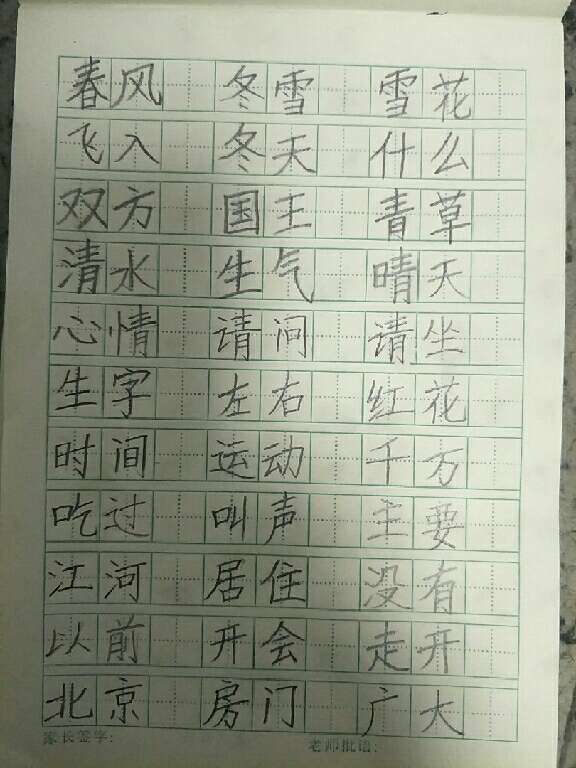 春风 冬雪 雪花
飞入 冬天 什么
双方 国王 青草
清水 生气 晴天
心情 请问 请坐
生字 左右 红花
时间 运动 千万
吃过 叫声 主要
江河 居住 没有
以前 开会 走开
北京 房门 广大
家长签字: 老师批语: